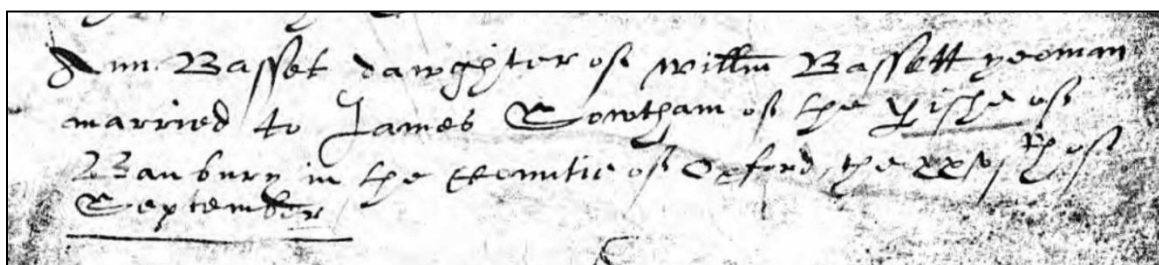 Ann Basset dawghter of Willm Bassett yeoman
married to James Sowtham of the pishe of
Banbury in the Countie of Oxford, the xxvth of
September